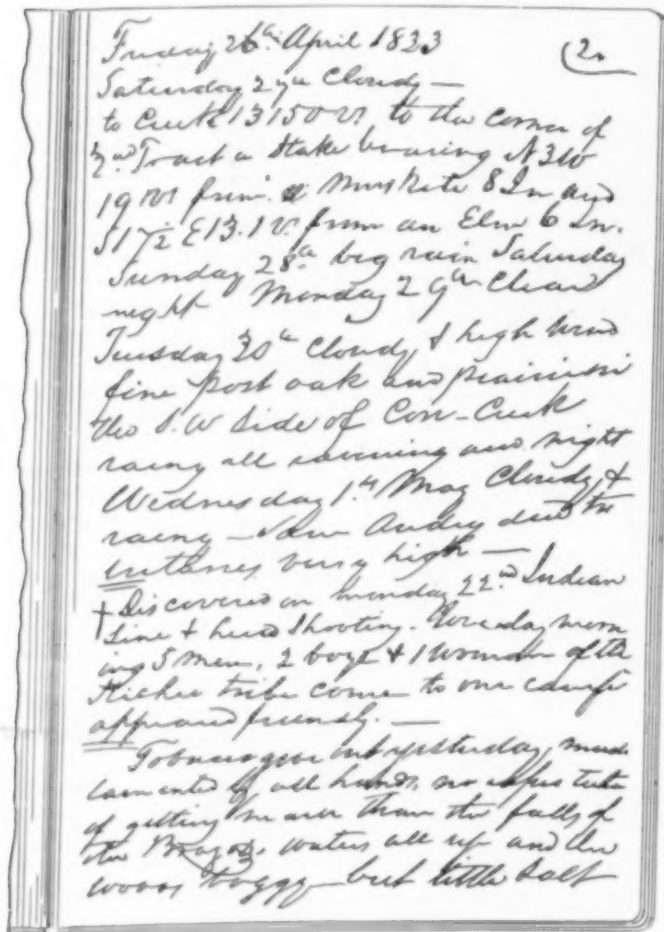 Friday 26th April 1833
(2.
Saturday 27th Cloudy —
to Creek 13150 vs. to the corner of
2nd Tract a Stake bearing N 3 W
19 vs from a Muskete 8 In and
S 17½ E 13.1 vs from an Elm 6 In.
Sunday 28th big rain Saturday
night Monday 29th Clear
Tuesday 30th Cloudy & high wind
fine post oak and prairie on
the S.W side of Cow-Creek
rainy all evening and night
Wednesday 1st May Cloudy &
rainy — San Andres and the
waters very high —
+ Discovered on Monday 22nd Indian
Sine & heard Shooting. Tuesday morn
ing 5 men, 2 boys & 1 woman of the
Kichee tribe come to our camp
appeared friendly. —
Tobacco gave out yesterday, much
lamented by all hands, no
of getting nearer than the falls of
the Brazos. waters all up and the
woods boggy — but little Salt